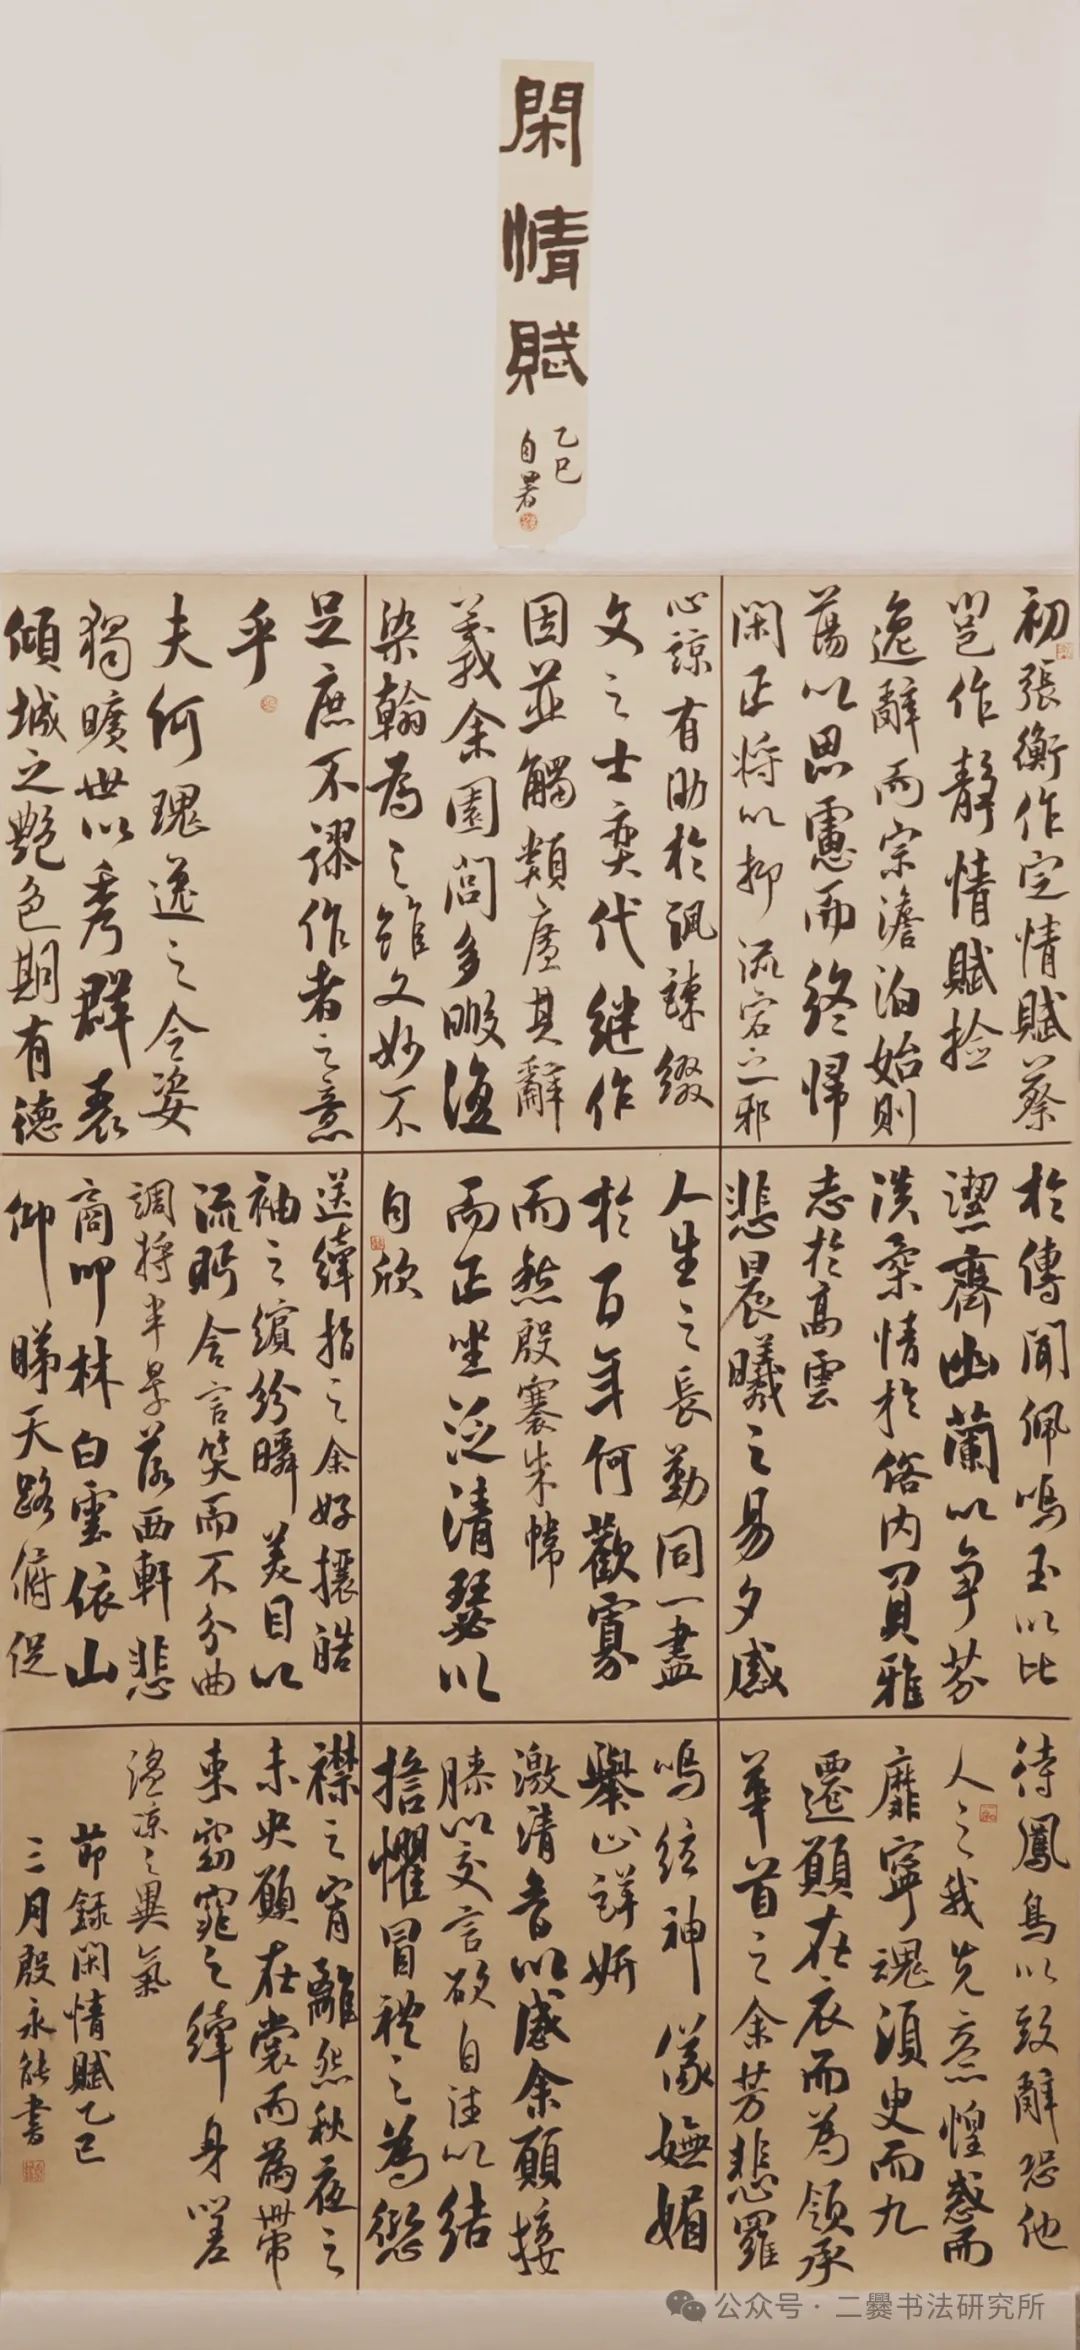 閑情賦
乙巳
自署
初張衡作定情賦蔡
邕作静情賦撿
逸辭而宗澹泊始則
蕩以思慮而終歸
閑正将以抑流宕之邪
心諒有助於諷諫綴
文之士奕代継作
因並觸類廣其辭
義余園閭多暇復
染翰為之雖文妙不
足庶不謬作者之意
乎
夫何瑰逸之令姿
獨曠世以秀群表
傾城之艷色期有德
於傳聞佩鳴玉以比
潔齊幽蘭以争芬
淡柔情於俗内負雅
志於高雲
悲晨曦之易夕感
人生之長勤同一盡
於百年何歡寡
而愁殷褰朱幃
而正坐泛清瑟以
自欣
送纖指之余好攘皓
袖之繽紛瞬美目以
流眄含言笑而不分曲
調将半景落西軒悲
商叩林白雲依山
仰睇天路俯促
待鳳鳥以致辭恐他
人之我先意惶惑而
靡寧魂須臾而九
遷願在衣而為領承
華首之余芳悲羅
鳴弦神儀嫵媚
舉止詳妍
激清音以感余願接
膝以交言欲自往以結
懼冒禮之為愆
襟之宵離怨秋夜之
未央願在裳而為帶
束窈窕之纖身嗟
温凉之異氣
節録閑情賦乙巳
三月殷永能書
公众号·二爨书法研究所